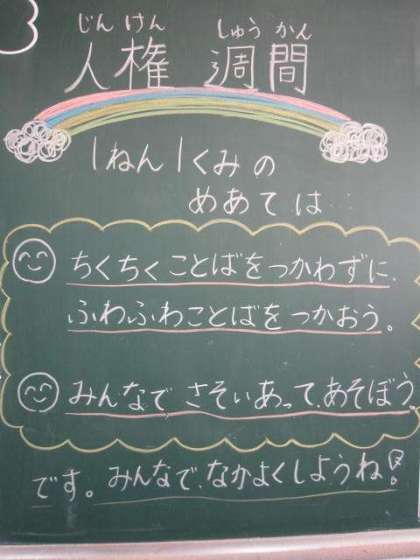 じんけん しゅうかん
人権 週間
1ねん1くみの
めあては
ちくちくことばをつかわずに、
ふわふわことばをつかおう。
みんなで さそいあって、あそぼう
です。みんなで、なかよくしようね!